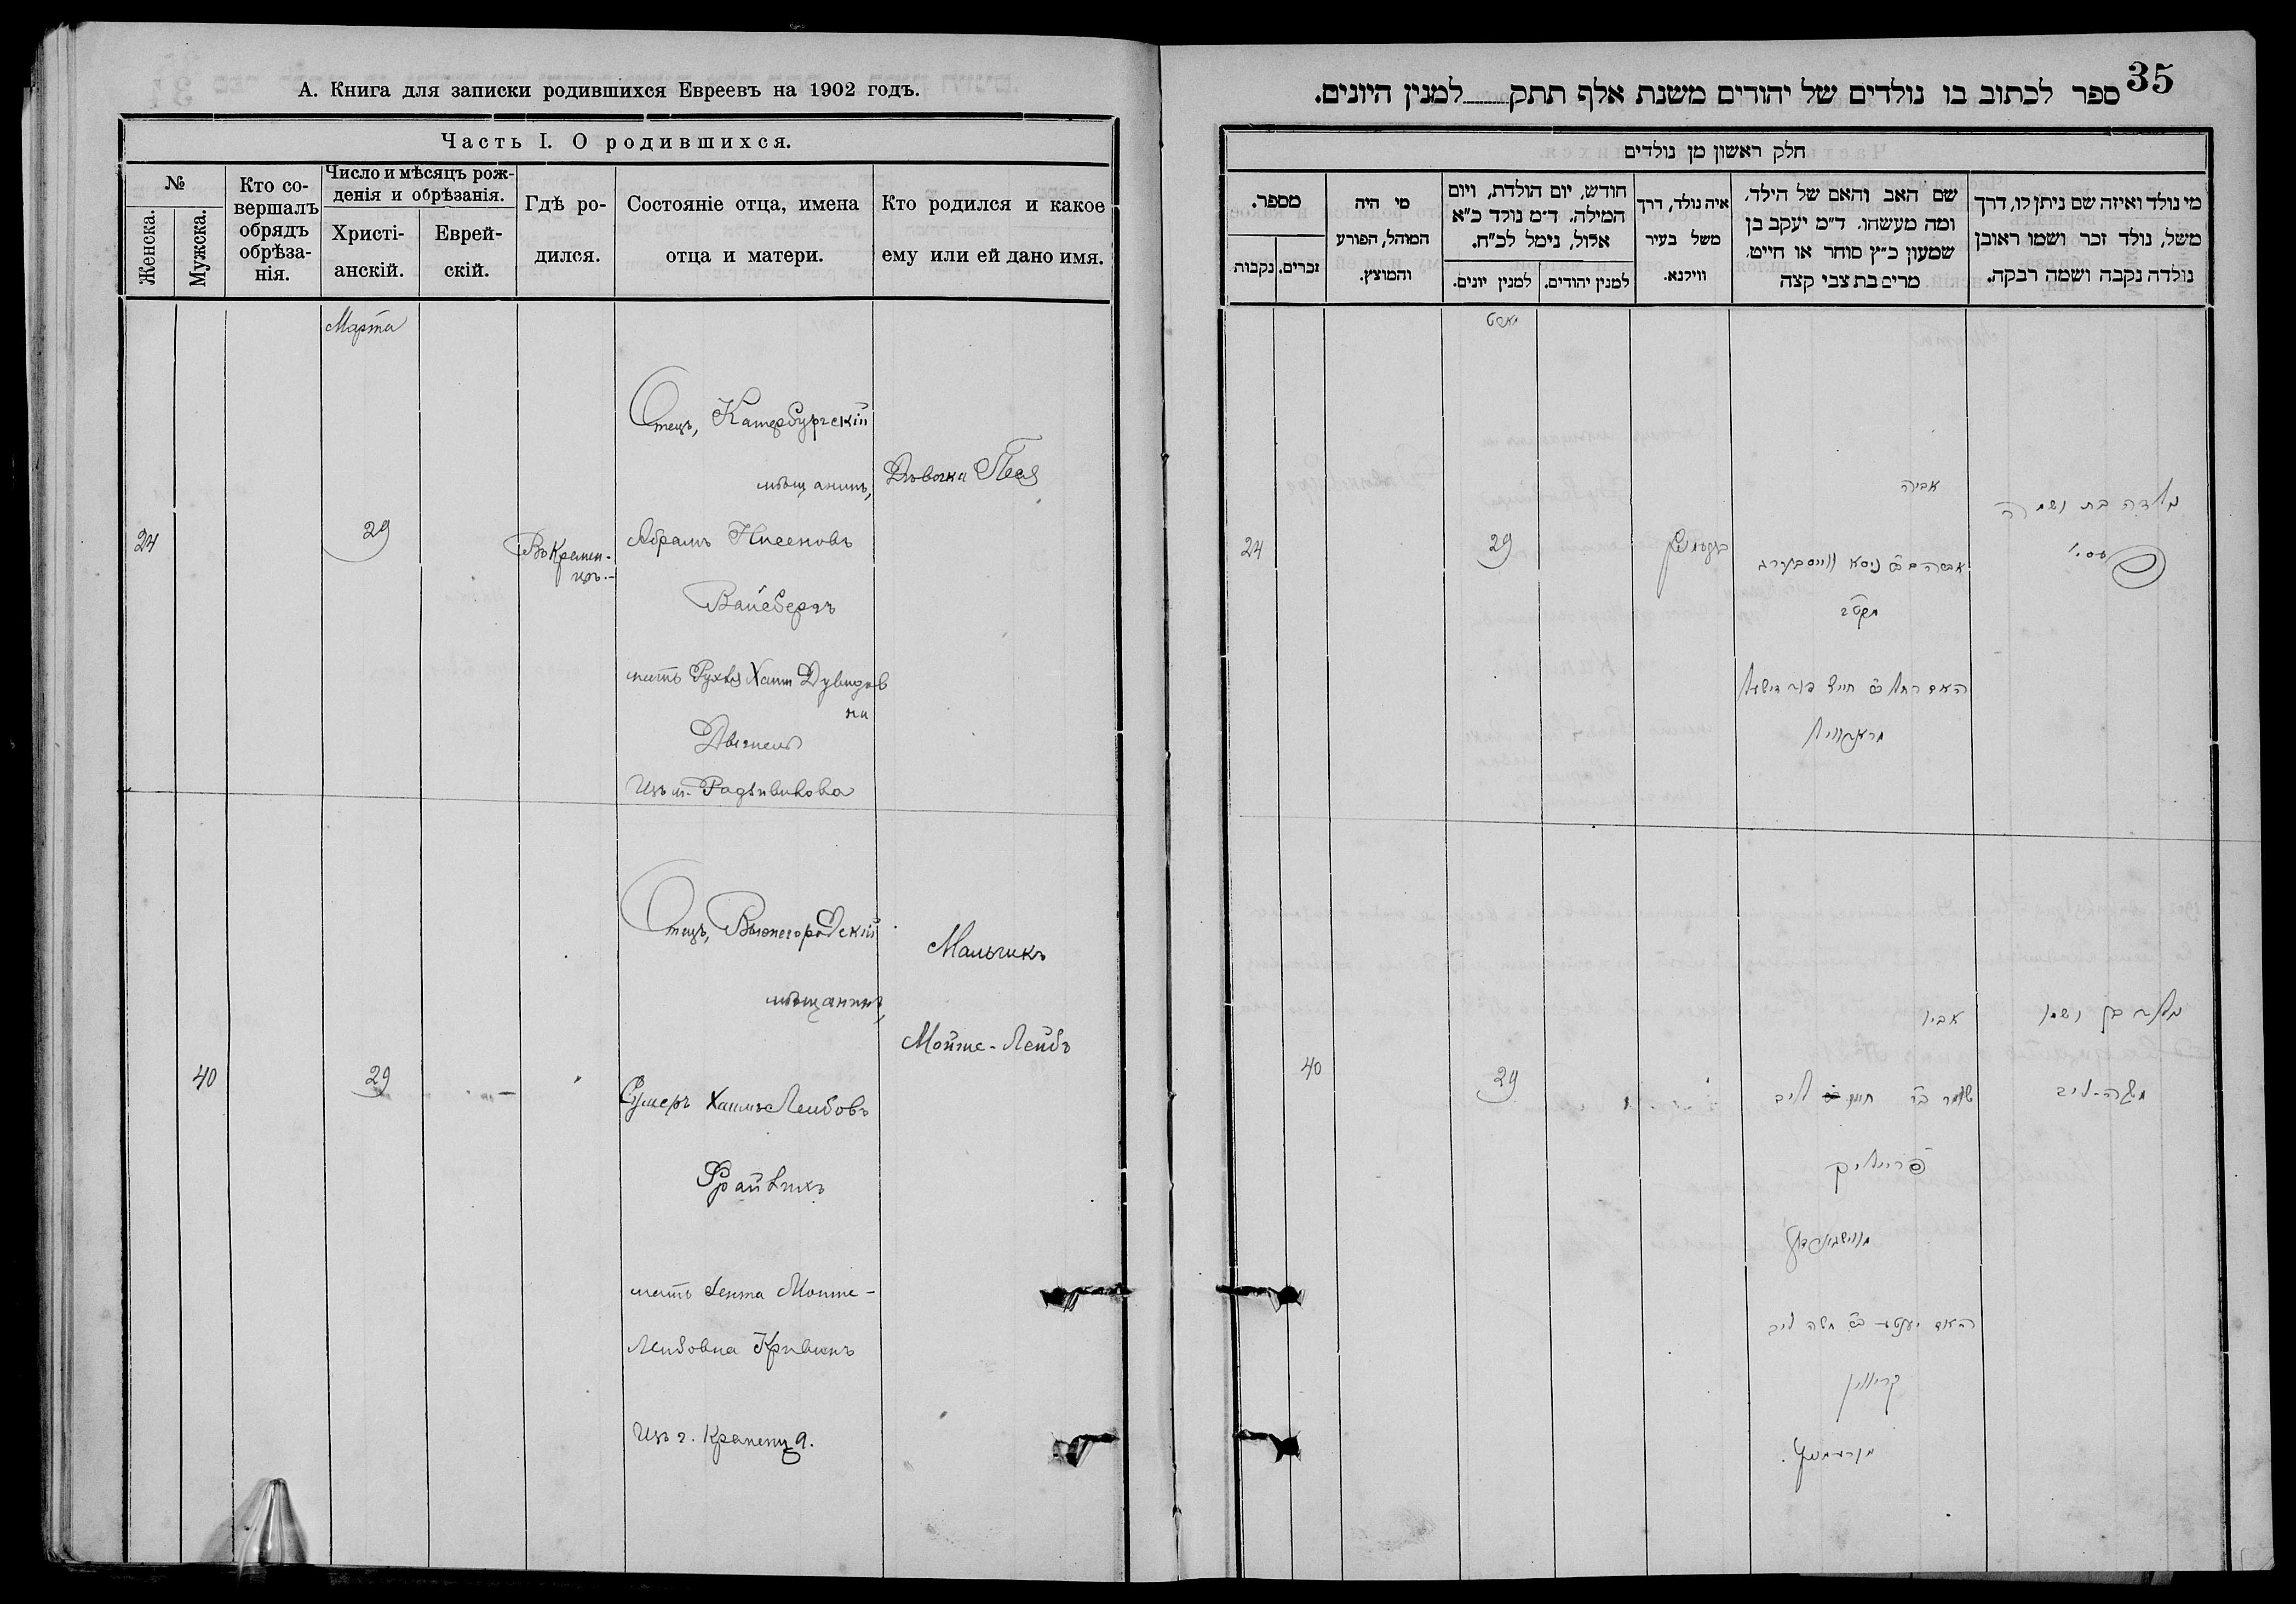 А. Книга для записки родившихся Евреевъ на 1902 годъ.
Часть I. О родившихся.
№
Женска.
Мужска.
Кто со-
вершалъ
обрядъ
обрѣза-
нія.
Число и мѣсяцъ рож-
денія и обрѣзанія.
Христі-
анскій.
Еврей-
скій.
Гдѣ ро-
дился.
Состояніе отца, имена
отца и матери.
Кто родился и какое
ему или ей дано имя.
Марта
24
29
Въ Кремен-
цѣ.-
Отецъ, Катербургскій
мѣщанинъ,
Абрамъ Нисеновъ
Вайсбергъ
мать Рухля Хаим Дувидов
на
Изъ м. Радзивилова
Дѣвочка Песя
40
29
Отецъ, Вышегородскій
мѣщанинъ,
Сумеръ Хаимъ Лейбовъ
мать Ента Мойше-
Лейбовна Кривинъ
Изъ г. Кременца.
Мальчикъ
Мойше-Лейбъ
35
ספר לכתוב בו נולדים של יהודים משנת אלף תתק למנין היונים.
חלק ראשון מן נולדים
מספר.
זכרים.
נקבות
מי היה
המוהל, הפורע
והמוצץ.
חודש, יום הולדת, ויום
המילה. ד״מ נולד כ״א
אלול, נימל לכ״ח.
למנין יהודים.
למנין יונים.
איה נולד, דרך
משל בעיר
ווילנא.
שם האב והאם של הילד,
ומה מעשהו. ד״מ יעקב בן
שמעון כ״ץ סוחר או חייט,
מרים בת צבי קצה
מי נולד ואיזה שם ניתן לו, דרך
משל, נולד זכר ושמו ראובן
נולדה נקבה ושמה רבקה.
מארט
24
29
אביה
נולדה בת ושמה
פסי
40
29
אביו
חיים ליב
האם יענטא בת משה ליב
קריווין
נולד בן ושמו
משה-ליב